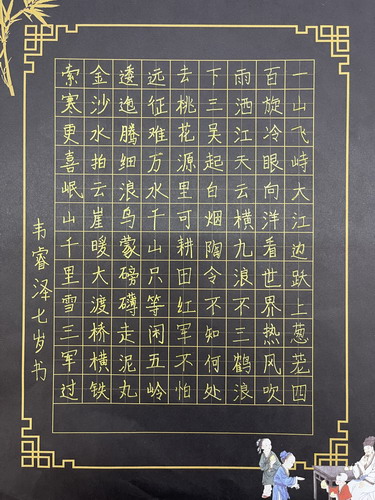 一山飞峙大江边跃上葱茏四
百旋冷眼向洋看世界热风吹
雨洒江天云横九鹤浪
下三吴起白烟陶令不知何处
去桃花源里可耕田红军不怕
远征难万水千山只等闲五岭
逶迤腾细浪乌蒙磅礴走泥丸
金沙水拍云崖暖大渡桥横铁
索寒更喜岷山千里雪三军过
韦睿泽七岁书